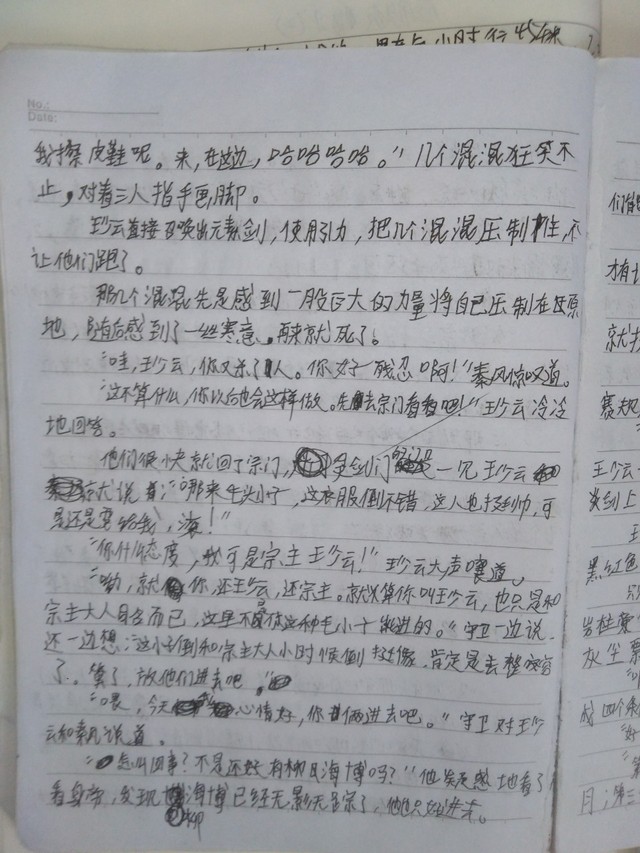 小时行45千米
No.:
Date:
我擦皮鞋呢。来,在这边,哈哈哈哈。"几个混混狂笑不
止,对着三人指手画脚。
王珍云直接召唤出元素剑,使用引力,把几个混混压制住,不
让他们跑了。
那几个混混先是感到一股巨大的力量将自己压制在原
地,随后感到了一丝寒意,再来就死了。
"哇,王珍云,你又杀了人。你好残忍啊!"秦风惊叹道。
"这不算什么,你以后也会这样做。先去宗门看看吧!"王珍云冷冷
地回答。
他们很快就回了宗门,剑门 一见王珍云
就说着:"哪来牛头小子,这衣服倒不错,这人也挺帅,可
是还是要给我,滚!"
"你什么态度,我可是宗主王珍云!"王珍云大声嚷道。
"呦,就你,还王珍云,还宗主。就算你叫王珍云,也只是和
宗主大人同名而已,这里不是你这种毛小子能进的。"守卫一边说
还一边想:这小子倒和宗主大人小时候倒挺像,肯定是去整容
了。算了,放他们进去吧。
"喂,今天心情好,你俩进去吧。"守卫对王珍
云和秦风说道。
"怎么回事?不是还有柳海博吗?"他疑惑地看了
看身旁,发现柳海博已经无影无踪了,他也只好进去。
们能
才有
就找
赛规
王珍云
谈到上
王
黑红色
岩柱
灰尘
成四个
"好
"第
月;第三